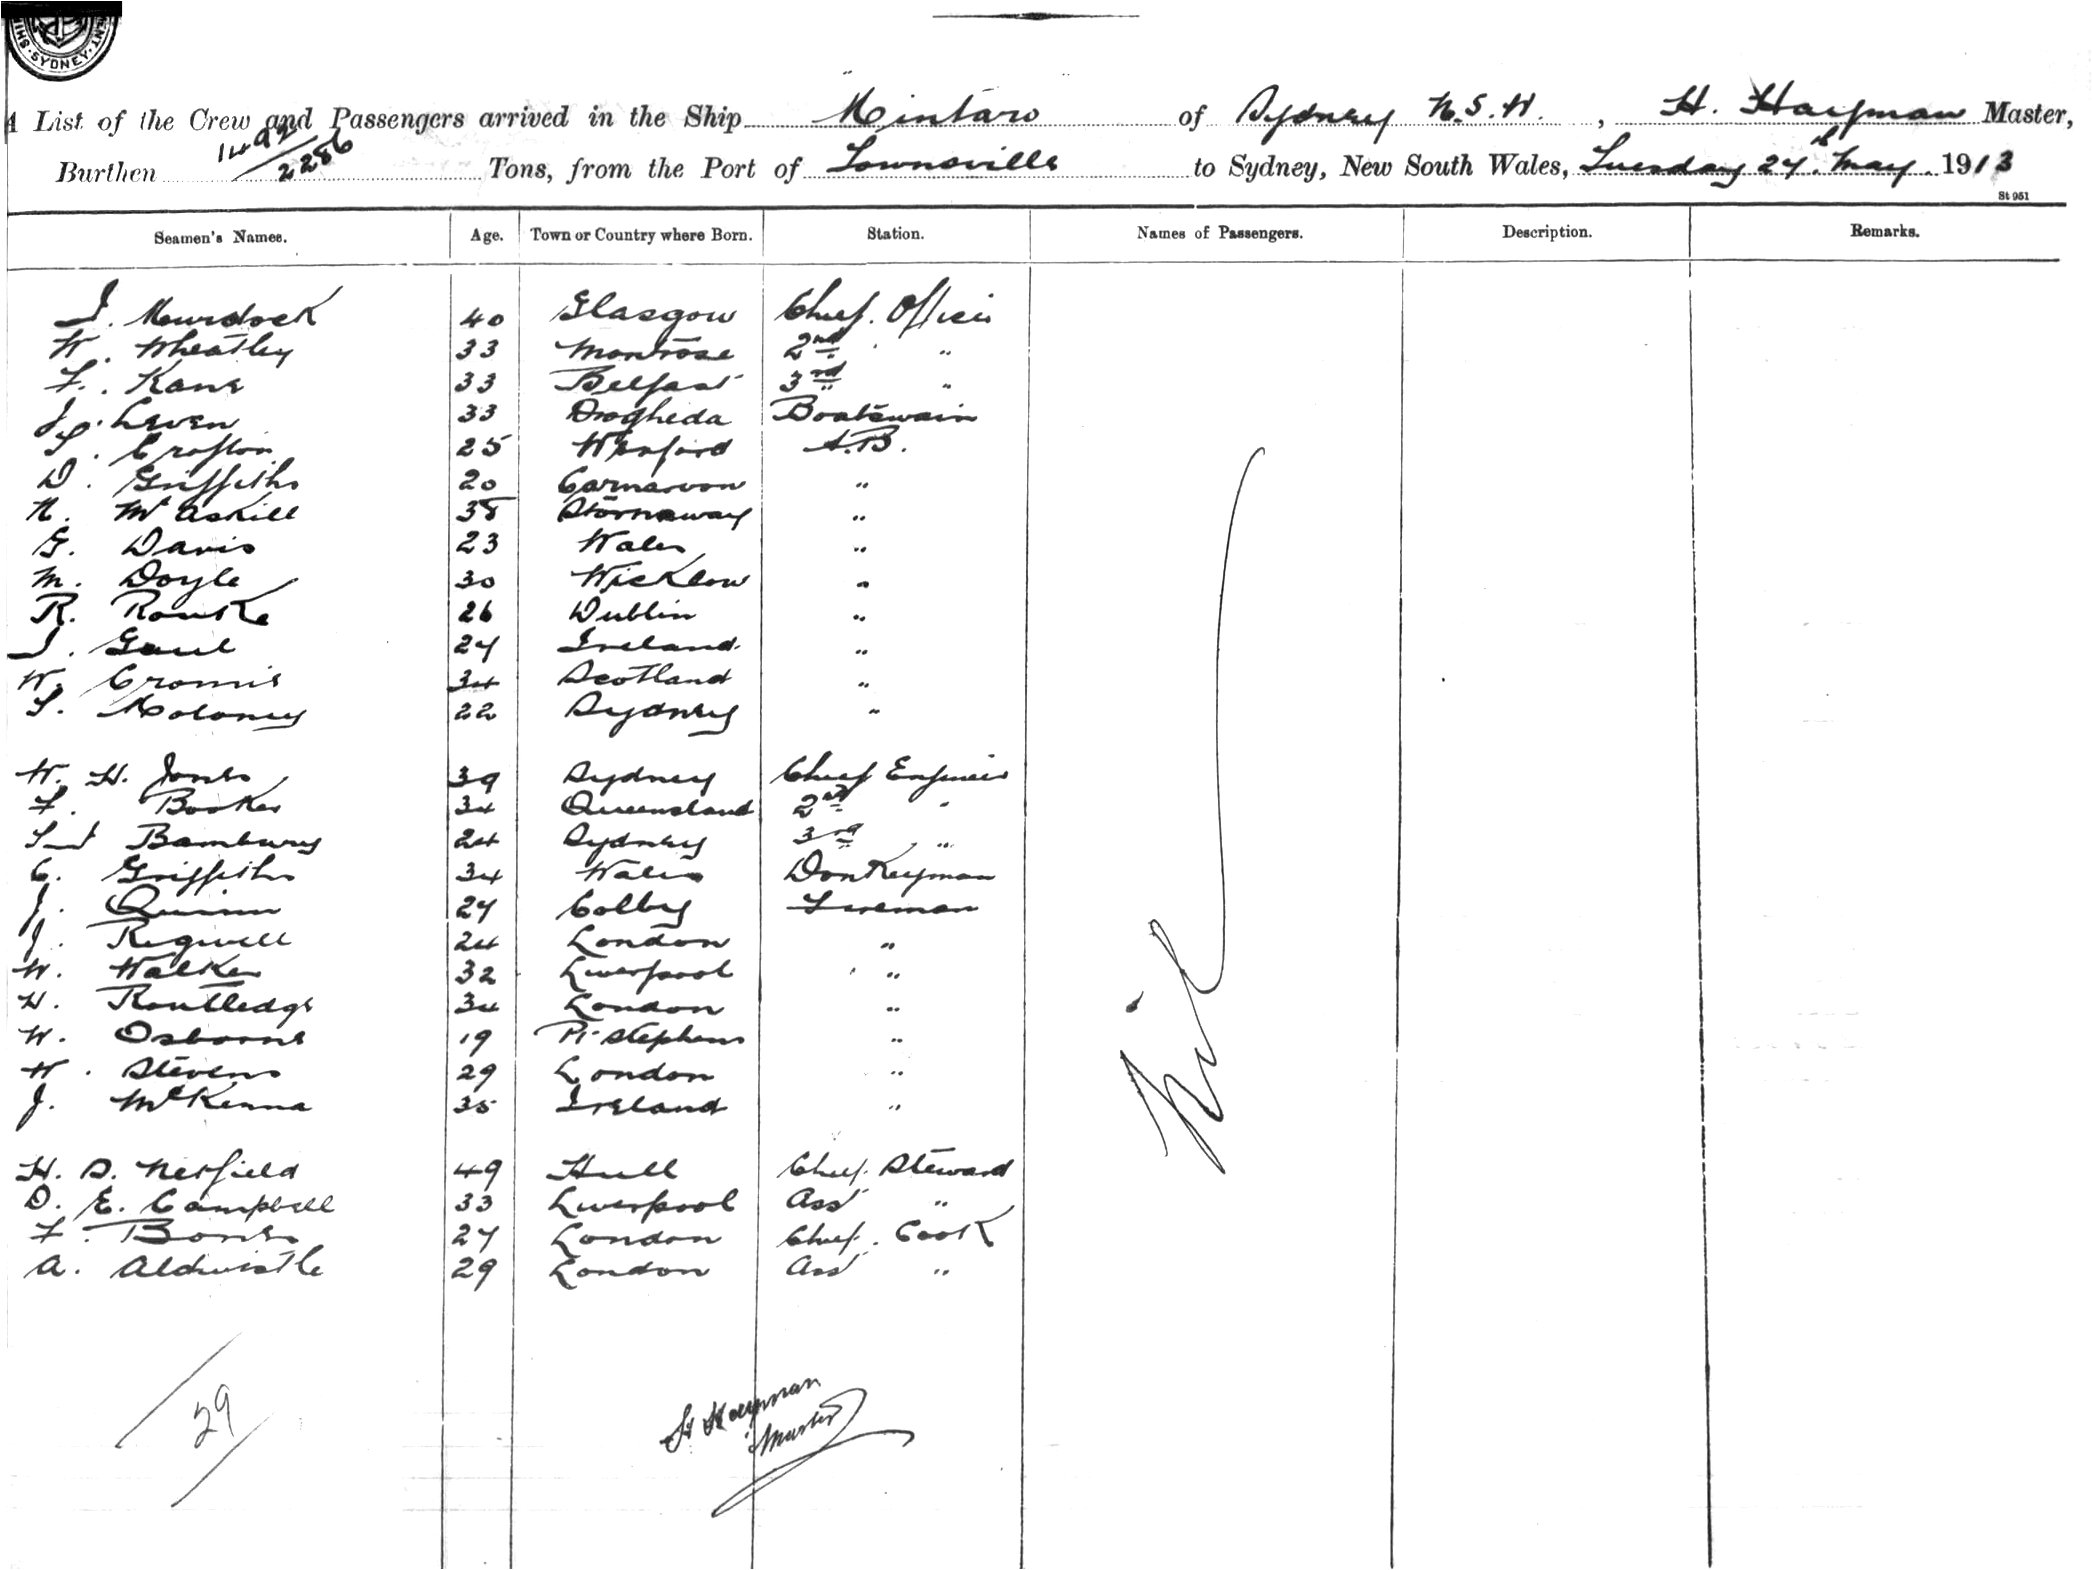 SYDNEY
A List of the Crew and Passengers arrived in the Ship Mintaro of Sydney N.S.W., H. Hayman Master,
Burthen 1492/2286 Tons, from the Port of Townsville to Sydney, New South Wales, Tuesday 27th May 1913
St 951
Seamen's Names. Age. Town or Country where Born. Station. Names of Passengers. Description. Remarks.
J. Murdock 40 Glasgow Chief Officer
W. Wheatley 33 Montrose 2nd "
F. Kane 33 Belfast 3rd "
J. Leven 33 Drogheda Boatswain
T. Crofton 25 Wexford A.B.
D. Griffiths 20 Carnarvon "
N. McAskill 38 Stornaway "
G. Davis 23 Wales "
M. Doyle 30 Wicklow "
R. Rourke 26 Dublin "
J. Gaul 27 Ireland "
W. Cromie 34 Scotland "
T. Moloney 22 Sydney "
W. H. Jones 39 Sydney Chief Engineer
F. Booker 34 Queensland 2nd "
Bambury 24 Sydney 3rd "
C. Griffiths 34 Wales Donkeyman
J. Quinn 27 Colby Fireman
J. Rigwell 24 London "
W. Walker 32 Liverpool "
H. Routledge 34 London "
W. Osborne 19 Pt Stephens "
W. Stevens 29 London "
J. McKenna 35 Ireland "
H. S. Netfield 49 Hull Chief Steward
D. E. Campbell 33 Liverpool Ass "
F. Bones 27 London Chief Cook
A. Aldwistle 29 London Ass "
Nil
29
H Hayman
Master